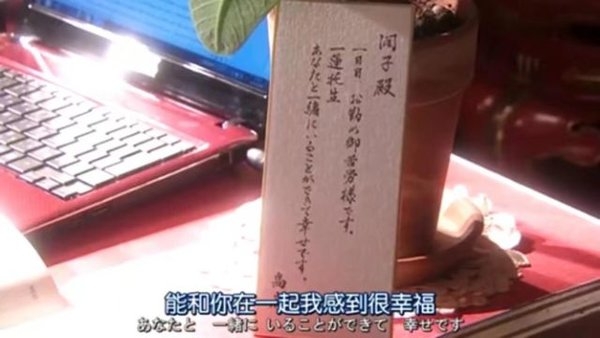 潤子殿
一日目 お勤め御苦労様です。
一蓮托生
あなたと一緒にいることができて幸せです。
高
能和你在一起我感到很幸福
あなたと 一緒に いることができて 幸せです